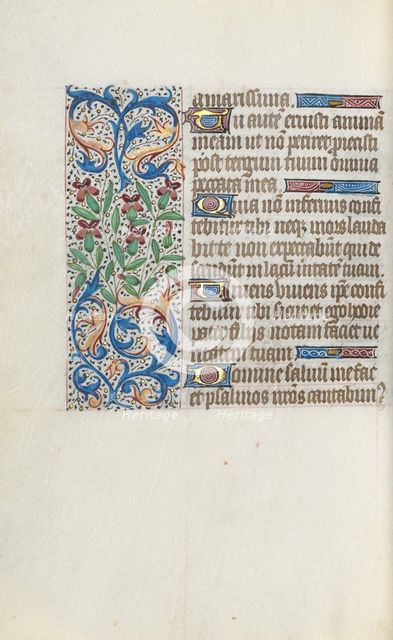 amarissima.
Tu autē eruisti animā
meam ut nō periret proiecisti
post tergum tuum omnia
peccata mea.
Quia nō infernus confi
tebitur tibi neq; mors lauda
bit te non expectabunt qui de
scendunt in lacū ueritatē tuam.
Viuens uiuens ipē confi
tebitur tibi sicut et ego hodie
pater filiis notam faciet ue
ritatem tuam.
Domine saluū me fac
et psalmos nr̄os cantabim9
Heritage Heritage